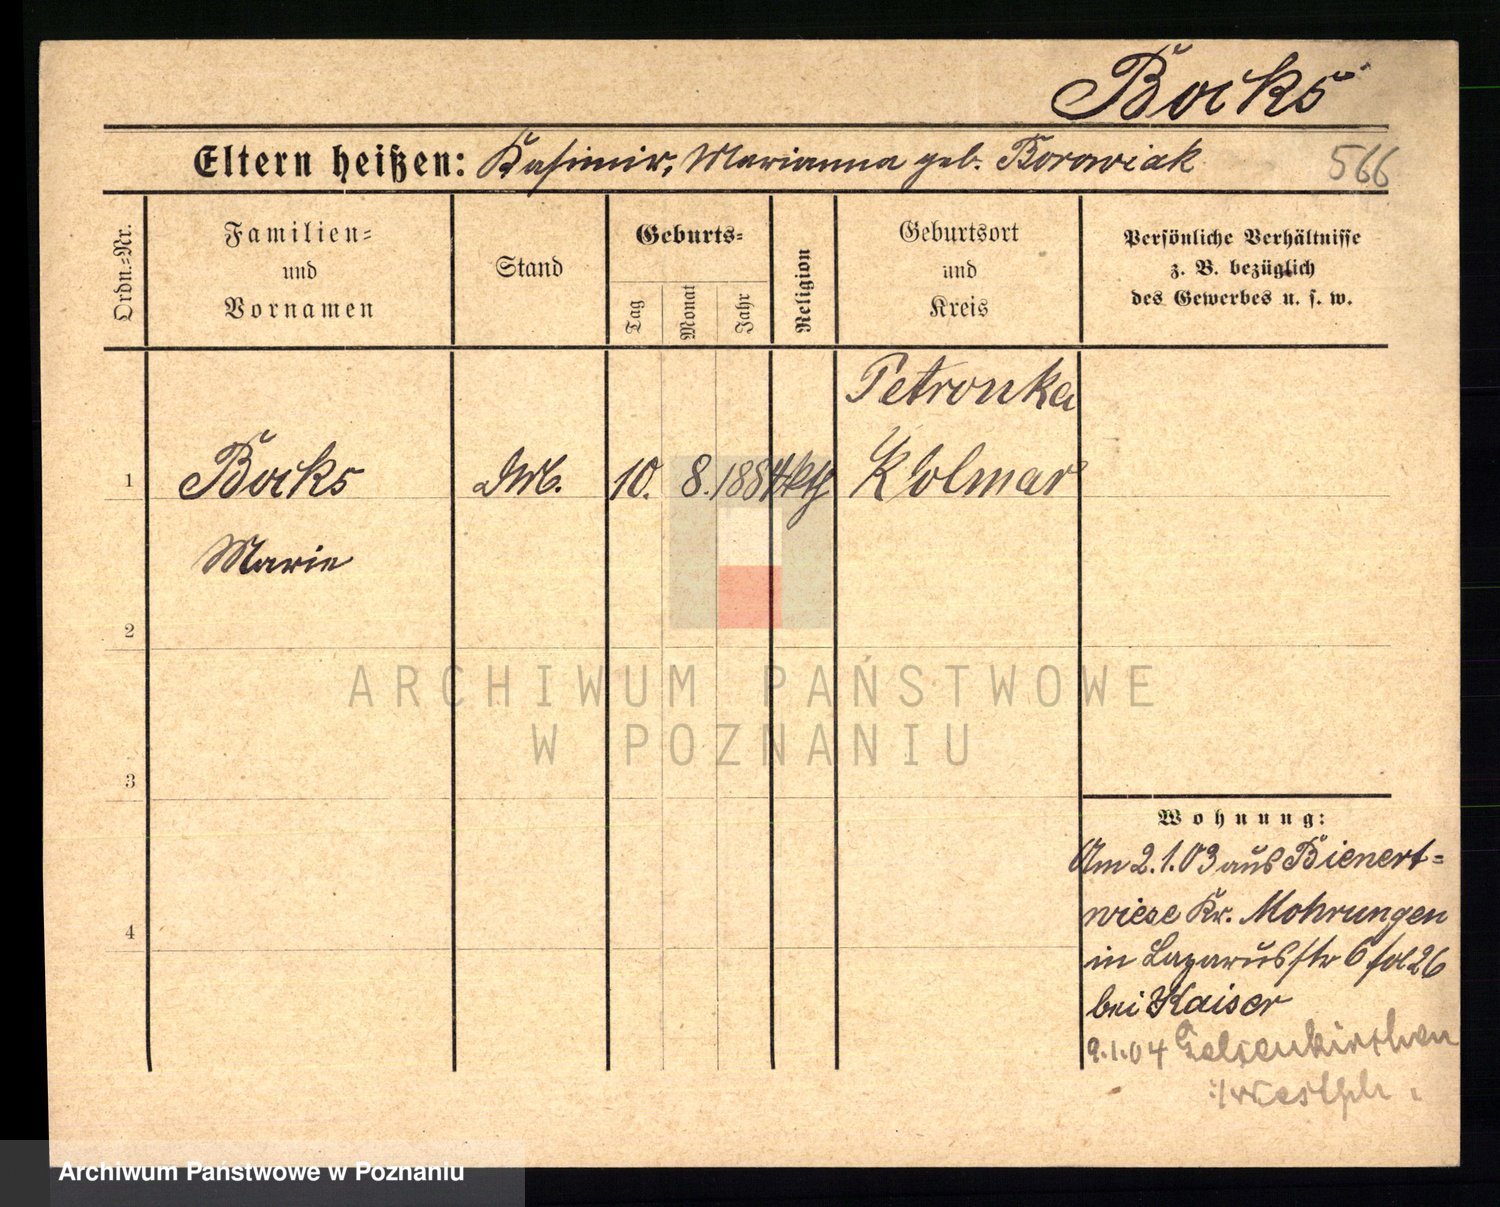 Bocks
Eltern heißen: Kasimir, Marianna geb. Borowiak
566
Ordn.=Nr.
Familien=
und
Vornamen
Stand
Geburts=
Tag
Monat
Jahr
Religion
Geburtsort
und
Kreis
Persönliche Verhältnisse
z. B. bezüglich
des Gewerbes u. s. w.
Petronka
1 Bocks 10. 8. 1884 kth Kolmar
Marie
2
ARCHIWUM PAŃSTWOWE
W POZNANIU
3
4
Wohnung:
Am 2.1.03 aus Bienert=
wiese Kr. Mohrungen
in Lazarusstr 6 26
bei Kaiser
9.1.04 Gelsenkirchen
i/Westph.
Archiwum Państwowe w Poznaniu